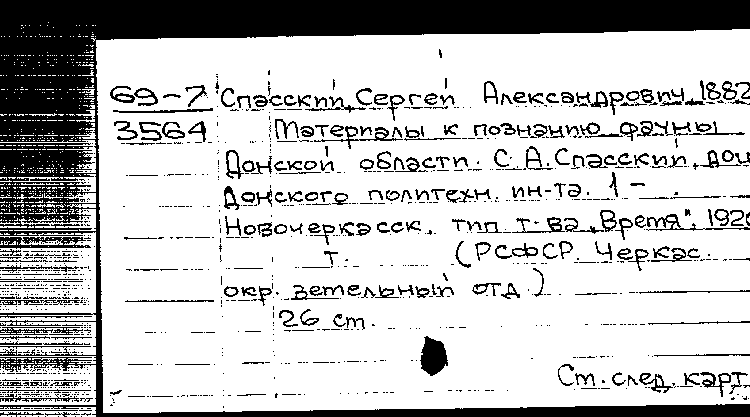 69-7 Спасский, Сергей Александрович, 1882
3564 Материалы к познанию фауны
Донской области. С.А.Спасский, доц
Донского политехн. ин-та. 1 - .
Новочеркасск, тип т-ва „Время",
т. (РСФСР. Черкас.
окр. земельный отд.)
26 см.
См. след. карт